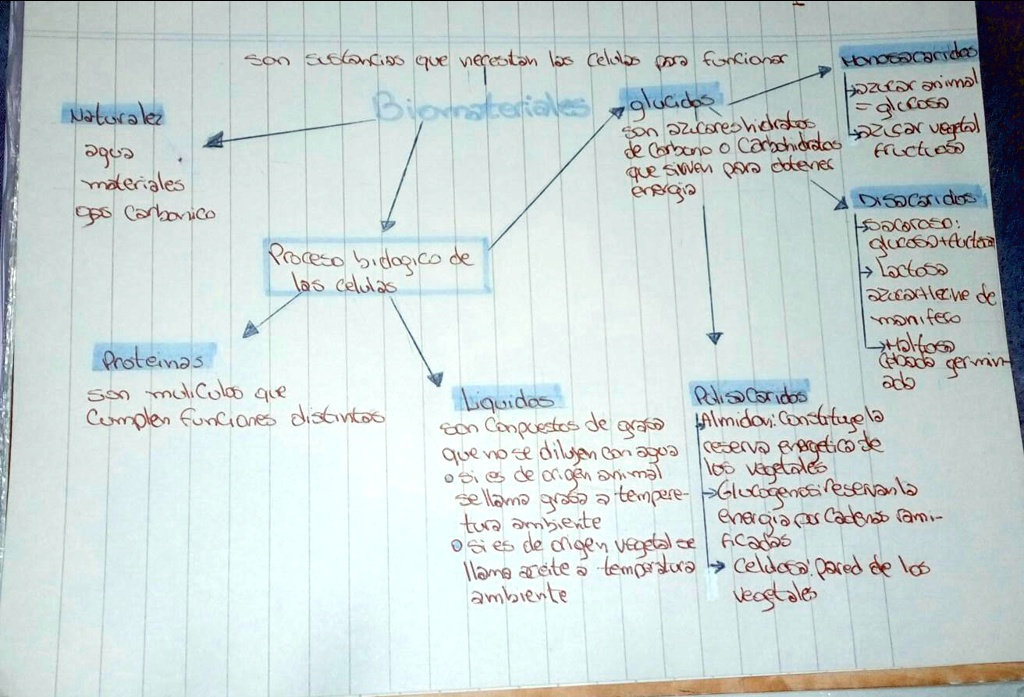 son sustancias que necesitan las celulas para funcionar
Biomateriales
Naturalez
agua
materiales
gas carbonico
Proceso biologico de
las celulas
Proteinas
son muliculas que
Cumplen funciones distintas
Liquidos
son Conpuestos de grasa
que no se diluyen con agua
si es de origen animal
se llama grasa a tempere-
tura ambiente
si es de origen vegetal se
llama aceite a temperatura
ambiente
glucidos
son azucares hidratos
de Carbono o Carbohidratos
que sirven para obtener
energia
Monosacaridos
azucar animal
= glucosa
azucar vegetal
fructuosa
Disacaridos
sacarosa:
glucosa+fructosa
Lactosa
azucar+leche de
mamifeco
Maltosa
Cebada germin-
ado
Polisacaridos
Almidon: Constituye la
reserva energetica de
los vegetales
Glucogenos: reservan la
energia por Cadenas rami-
ficadas
Celulosa: pared de los
vegetales